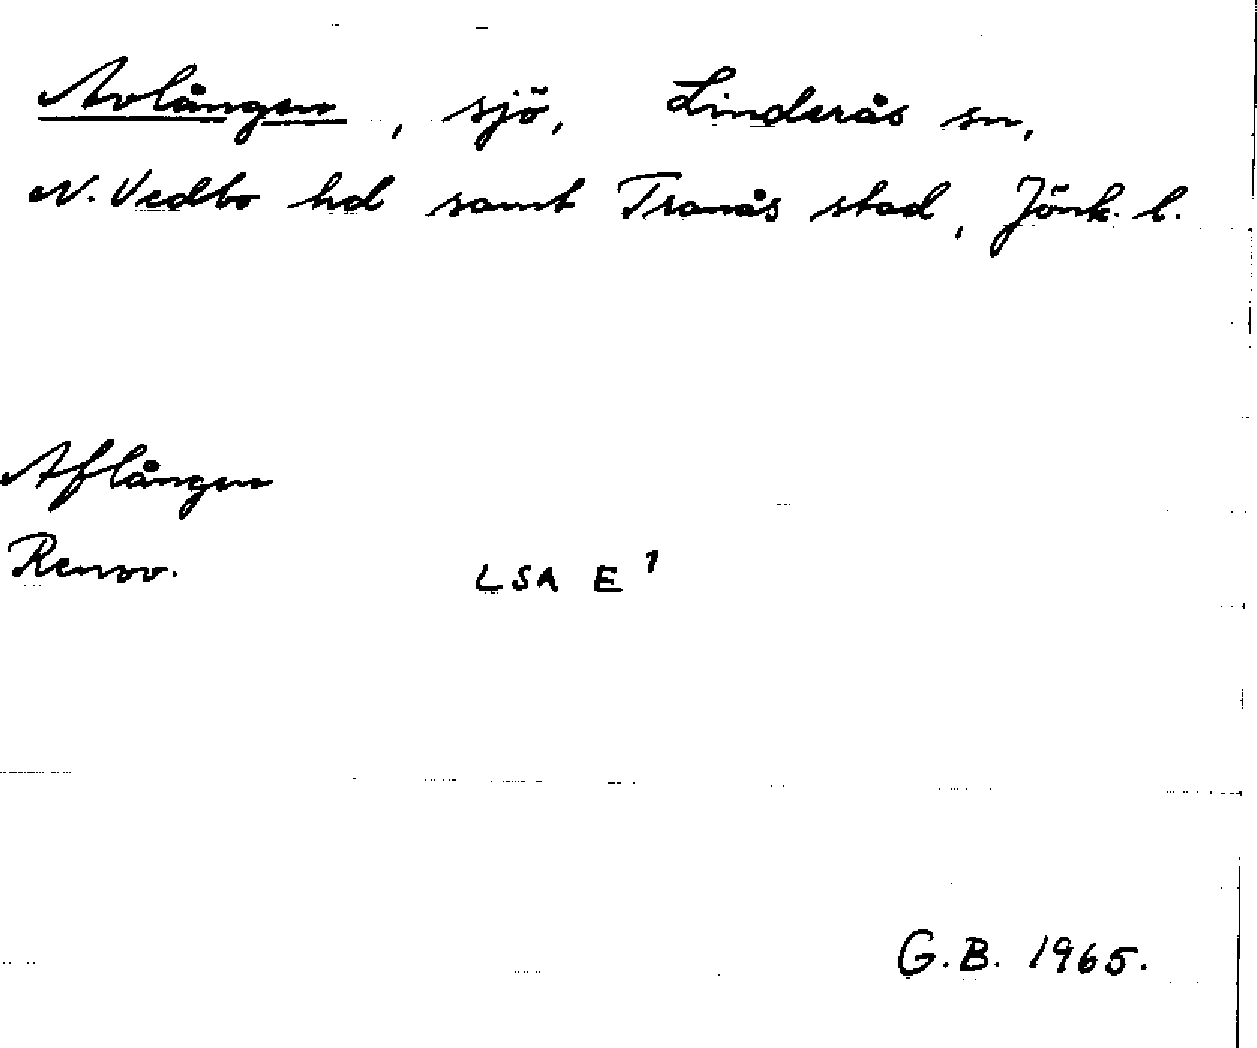 Avlången, sjö, Linderås sn,
N. Vedbo hd samt Tranås stad, Jönk. l.
Aflången
Renov. LSA E 1
G.B. 1965.